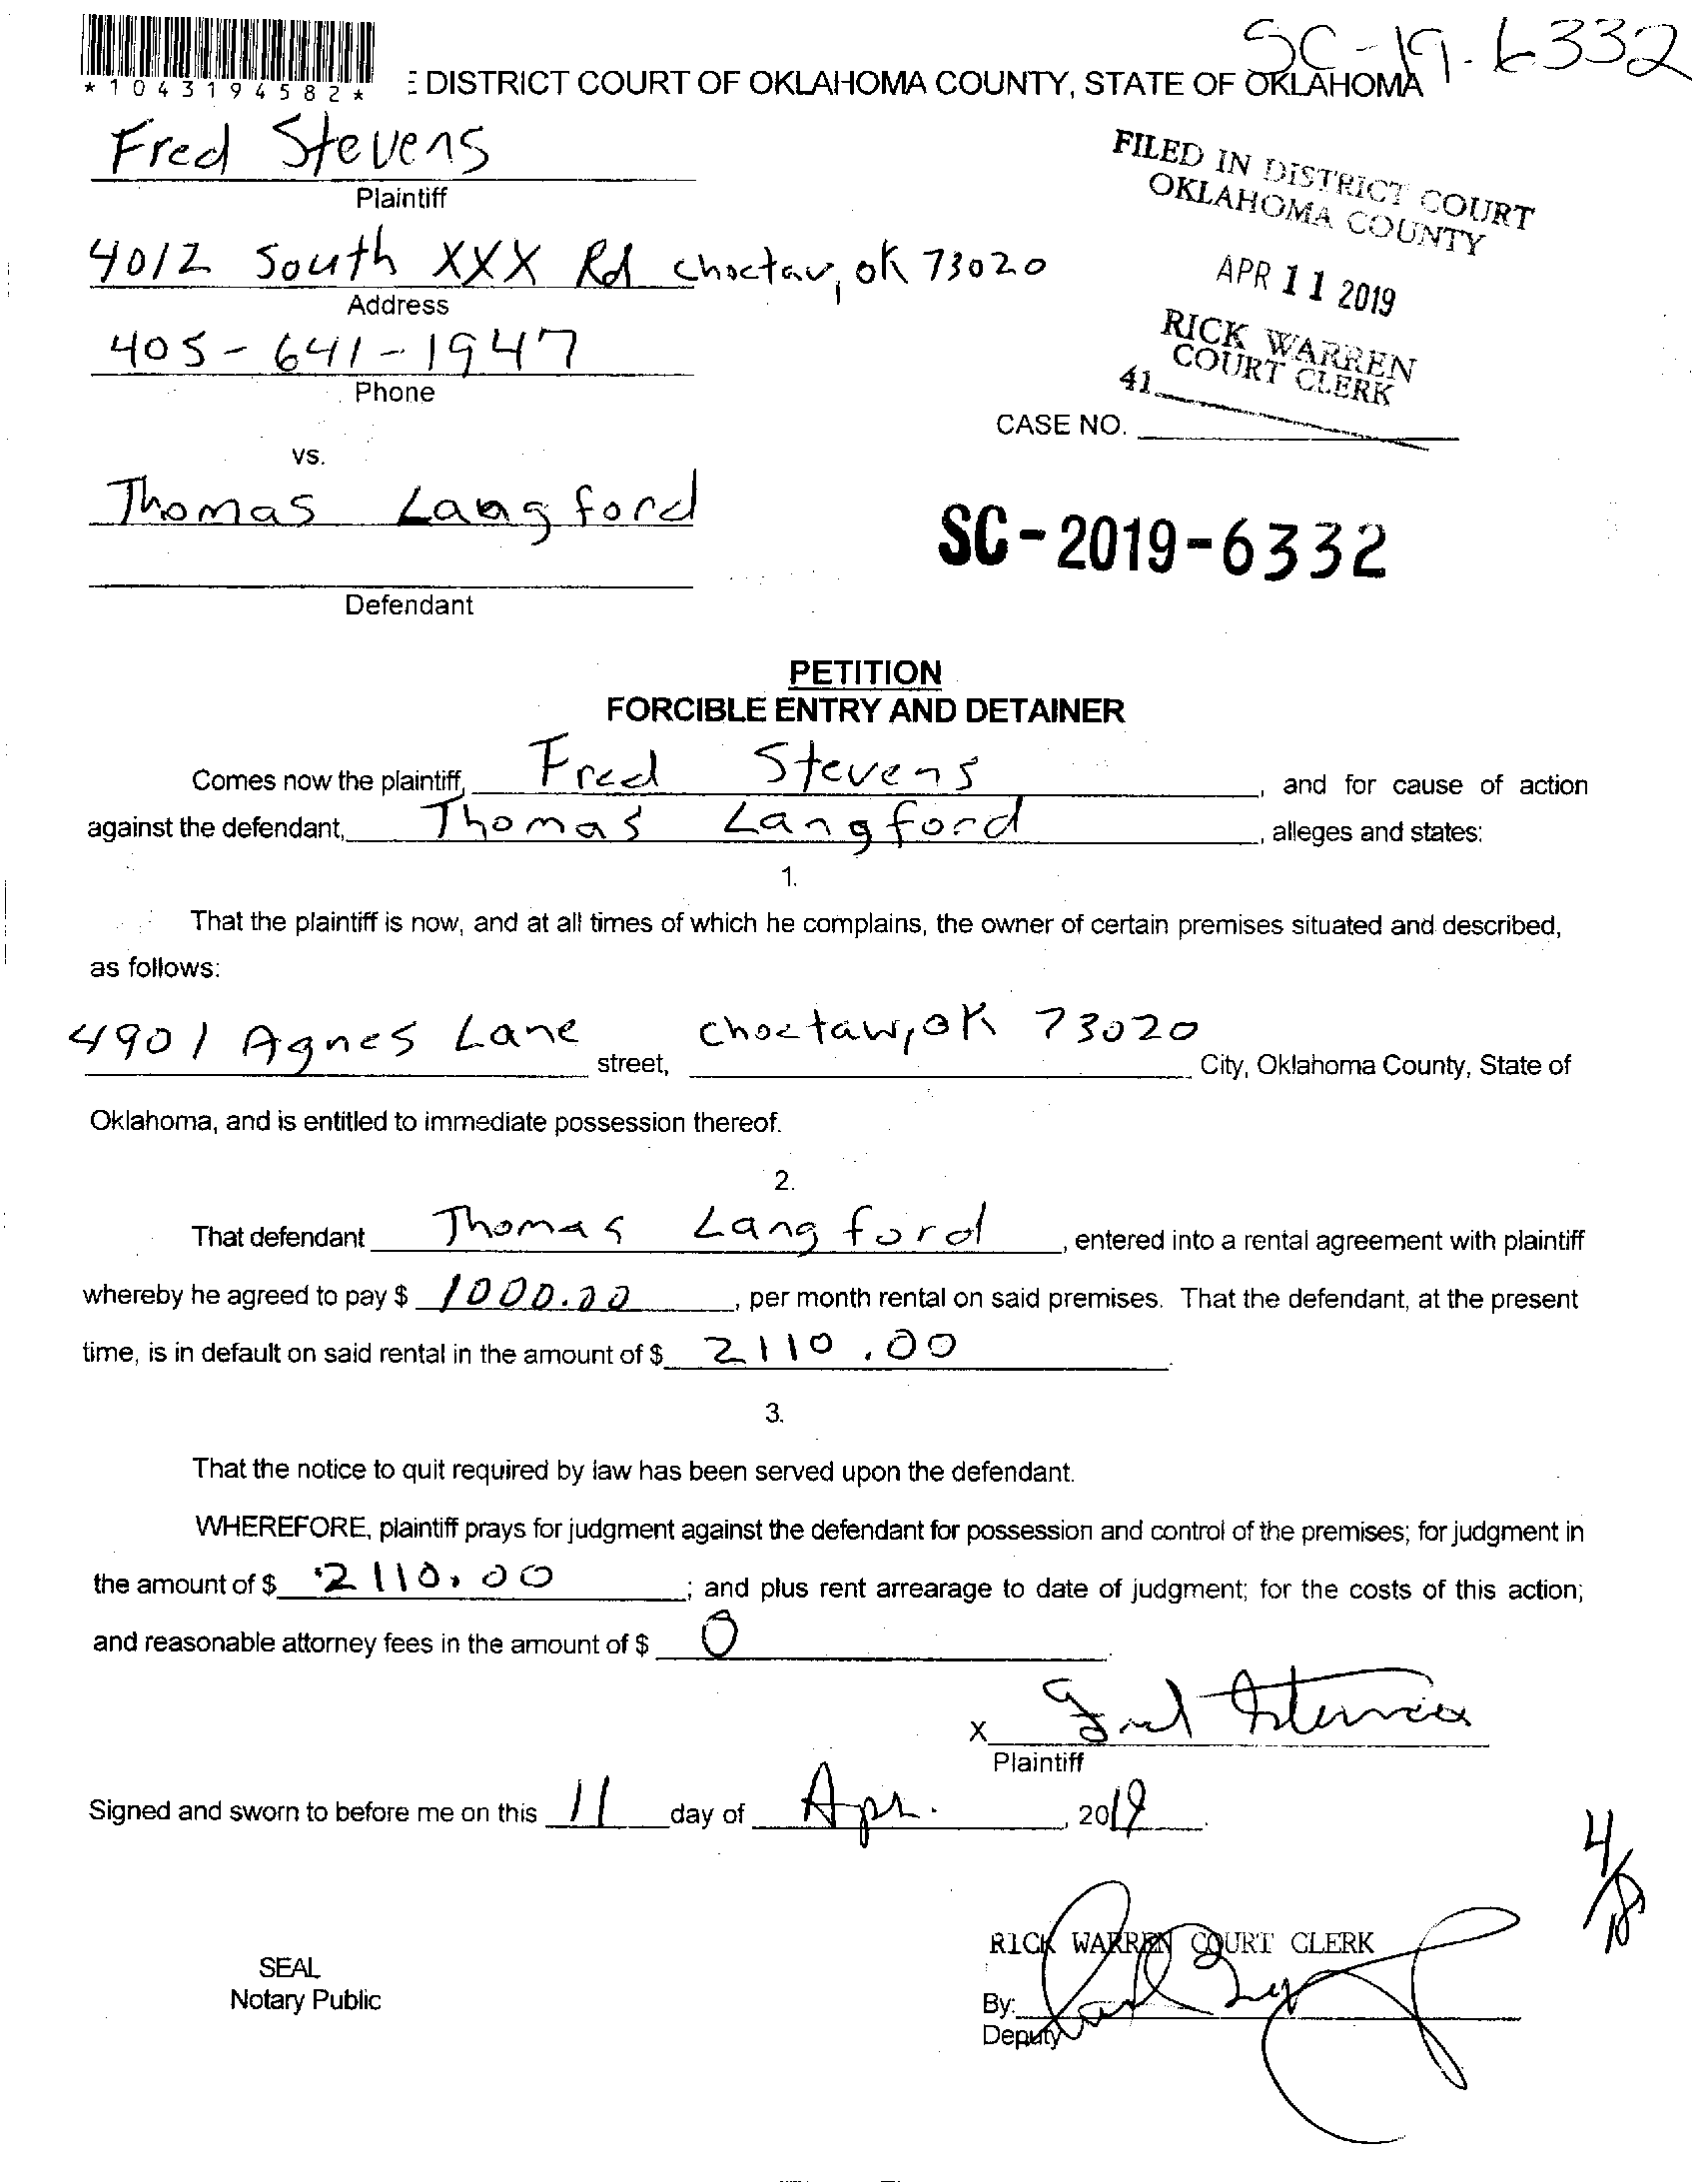 SC-19-6332
*1043194582*
E DISTRICT COURT OF OKLAHOMA COUNTY, STATE OF OKLAHOMA
Fred Stevens
Plaintiff
4012 South XXX Rd Choctaw, OK 73020
Address
405-641-1947
Phone
FILED IN DISTRICT COURT
OKLAHOMA COUNTY
APR 11 2019
RICK WARREN
COURT CLERK
41
CASE NO.
vs.
Thomas Langford
SC-2019-6332
Defendant
PETITION
FORCIBLE ENTRY AND DETAINER
Comes now the plaintiff, Fred Stevens, and for cause of action
against the defendant, Thomas Langford, alleges and states:
1.
That the plaintiff is now, and at all times of which he complains, the owner of certain premises situated and described,
as follows:
4901 Agnes Lane street, Choctaw, OK 73020 City, Oklahoma County, State of
Oklahoma, and is entitled to immediate possession thereof.
2.
That defendant Thomas Langford, entered into a rental agreement with plaintiff
whereby he agreed to pay $ 1000.00, per month rental on said premises. That the defendant, at the present
time, is in default on said rental in the amount of $ 2110.00.
3.
That the notice to quit required by law has been served upon the defendant.
WHEREFORE, plaintiff prays for judgment against the defendant for possession and control of the premises; for judgment in
the amount of $ 2110.00; and plus rent arrearage to date of judgment; for the costs of this action;
and reasonable attorney fees in the amount of $ 0.
X Fred Stevens
Plaintiff
Signed and sworn to before me on this 11 day of Apr., 2019.
RICK WARREN COURT CLERK
SEAL
Notary Public
By:
Deputy